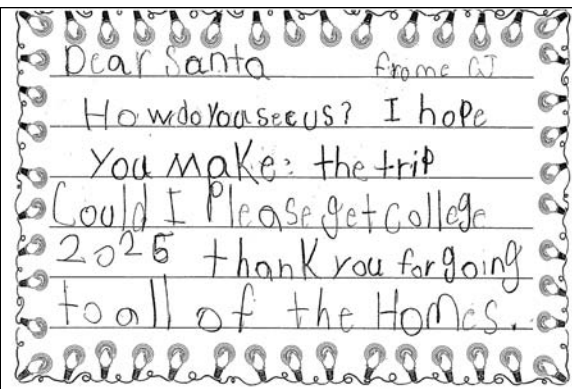 Dear Santa frome CJ
How do You see us? I hope
You make: the trip
Could I Please get college
2025 thank you for going
to all of the Homes.